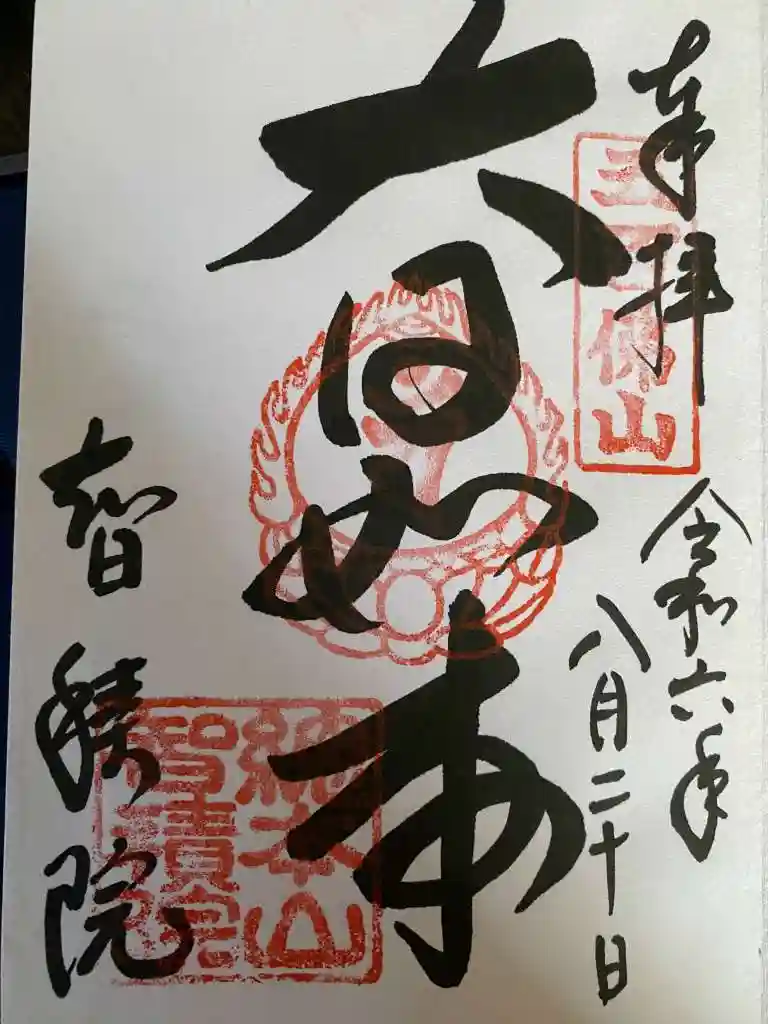 奉拝
令和六年
八月二十日
佛山
大日如来
智積院
総本山
智積院